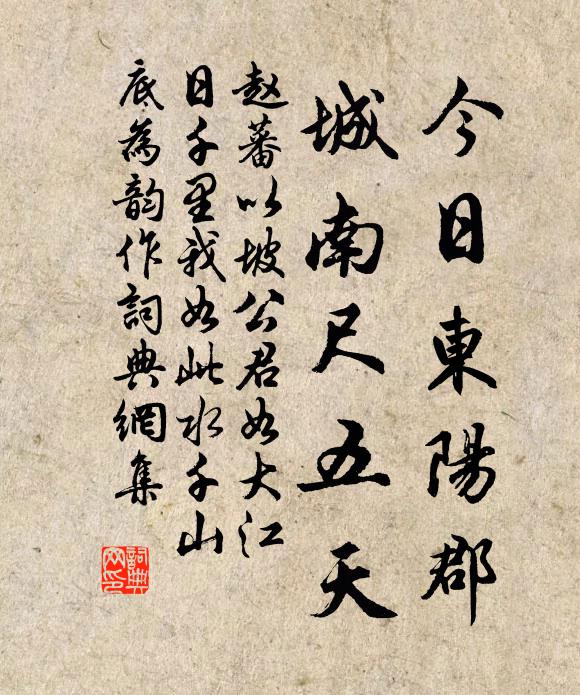 今日東陽郡
城南尺五天
趙蕃以坡公君如大江
日千里我如此水千山
底為韵作詞典網集
詞典网印